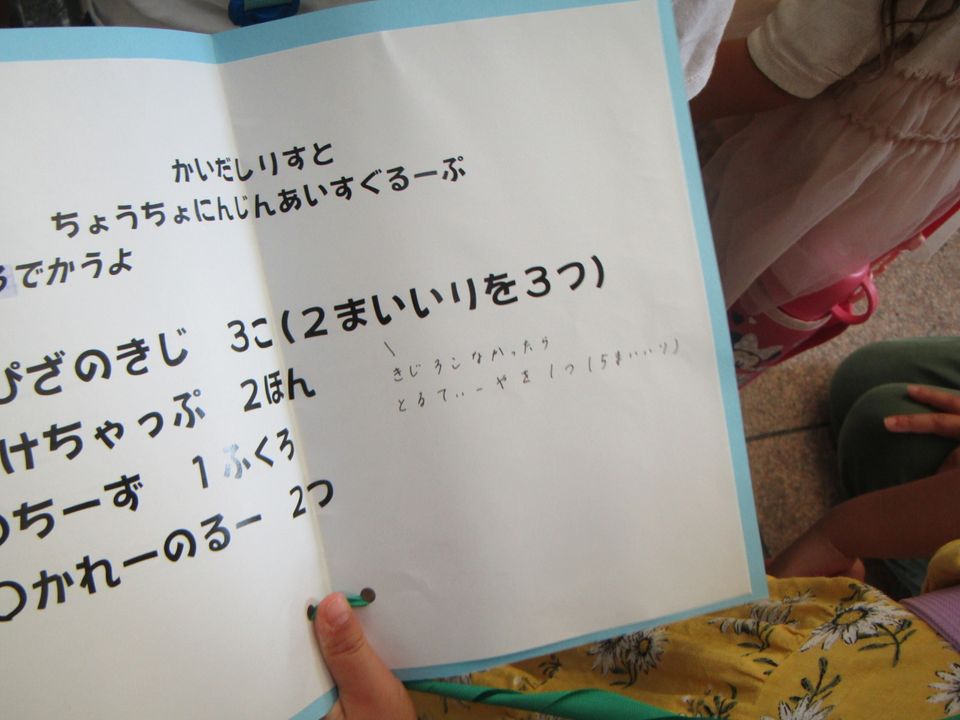 かいだしりすと
ちょうちょにんじんあいすぐるーぷ
でかうよ
ぴざのきじ 3こ(2まいいりを3つ)
きじ3こなかったら
とるてぃーやを1つ(5まいいり)
けちゃっぷ 2ほん
ちーず 1ふくろ
○かれーのるー 2つ